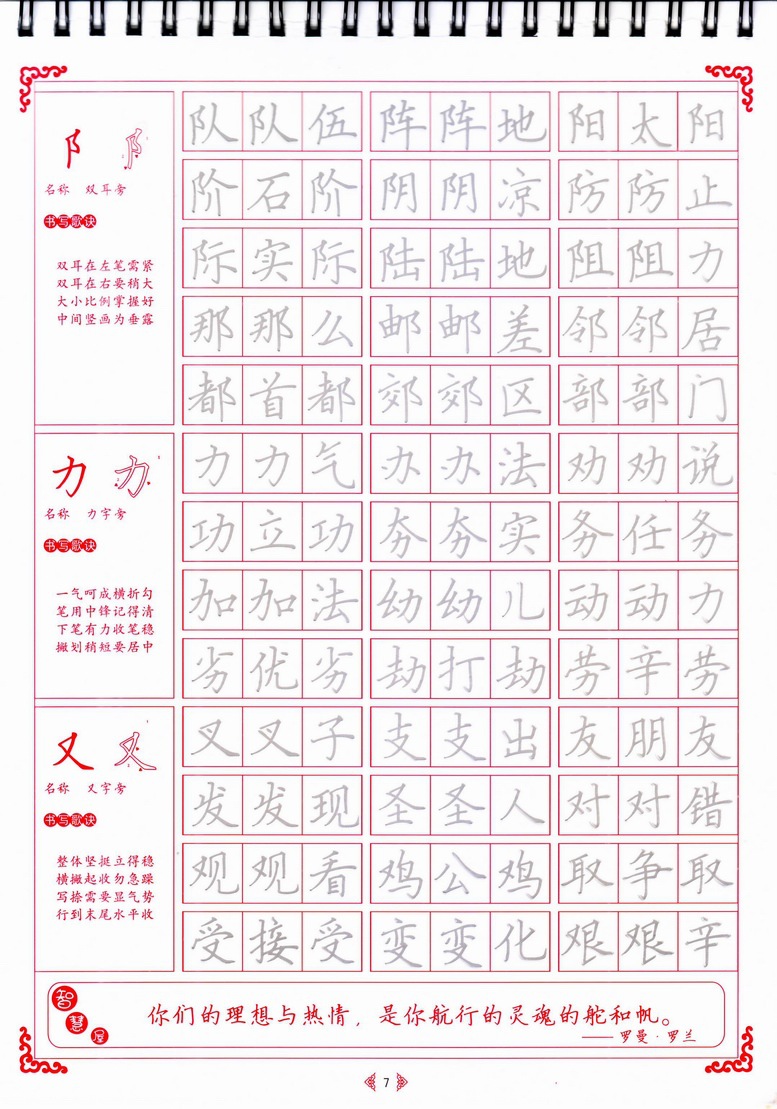 阝 阝
名称 双耳旁
书写歌诀
双耳在左笔需紧
双耳在右要稍大
大小比例掌握好
中间竖画为垂露
队 队 伍 阵 阵 地 阳 太 阳
阶 石 阶 阴 阴 凉 防 防 止
际 实 际 陆 陆 地 阻 阻 力
那 那 么 邮 邮 差 邻 邻 居
都 首 都 郊 郊 区 部 部 门
力 力
名称 力字旁
书写歌诀
一气呵成横折勾
笔用中锋记得清
下笔有力收笔稳
撇划稍短要居中
力 力 气 办 办 法 劝 劝 说
功 立 功 夯 夯 实 务 任 务
加 加 法 幼 幼 儿 动 动 力
劣 优 劣 劫 打 劫 劳 辛 劳
又 又
名称 又字旁
书写歌诀
整体坚挺立得稳
横撇起收勿急躁
写捺需要显气势
行到末尾水平收
叉 叉 子 支 支 出 友 朋 友
发 发 现 圣 圣 人 对 对 错
观 观 看 鸡 公 鸡 取 争 取
受 接 受 变 变 化 艰 艰 辛
智慧屋
你们的理想与热情，是你航行的灵魂的舵和帆。
——罗曼·罗兰
7